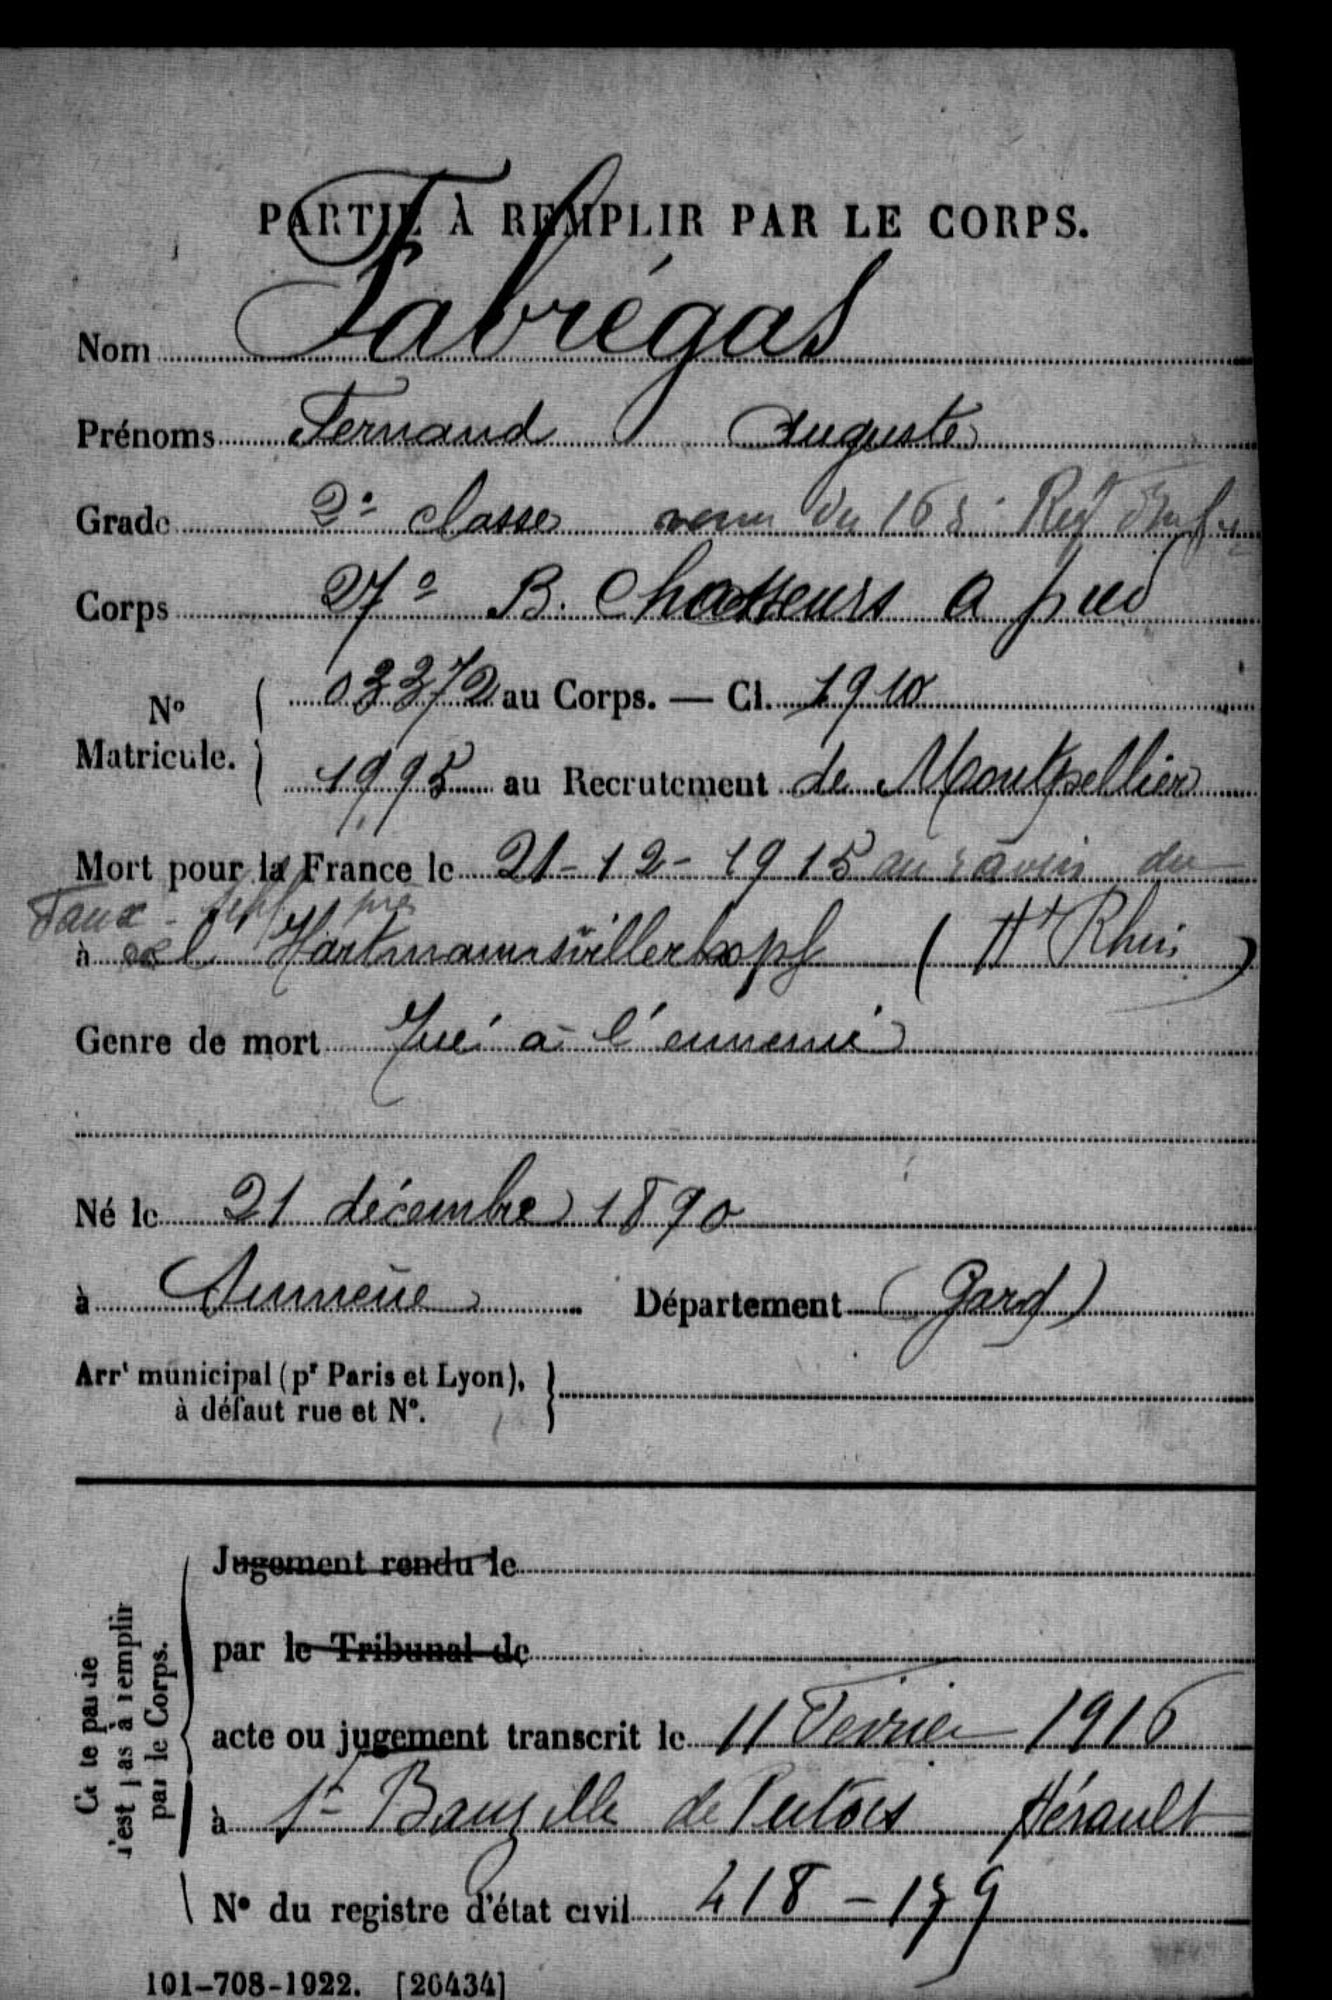 PARTIE À REMPLIR PAR LE CORPS.
Nom Fabrégas
Prénoms Fernand Auguste
Grade 2e classe venu du 163e Reg d'Inf ie
Corps 27e B. Chasseurs à pied
No Matricule. 03372 au Corps. — Cl. 1910
1995 au Recrutement de Montpellier
Mort pour la France le 21-12-1915 au ravin du
Faux-Sihl près
à l'Hartmannsvillerkopf (Ht Rhin)
Genre de mort Tué à l'ennemi
Né le 21 décembre 1890
à Sumène Département (Gard)
Arrt municipal (pr Paris et Lyon),
à défaut rue et No.
Cette partie
n'est pas à remplir
par le Corps.
Jugement rendu le
par le Tribunal de
acte ou jugement transcrit le 11 Février 1916
à St Bauzille de Putois Hérault
No du registre d'état civil 418 - 179
101-708-1922. [26434]